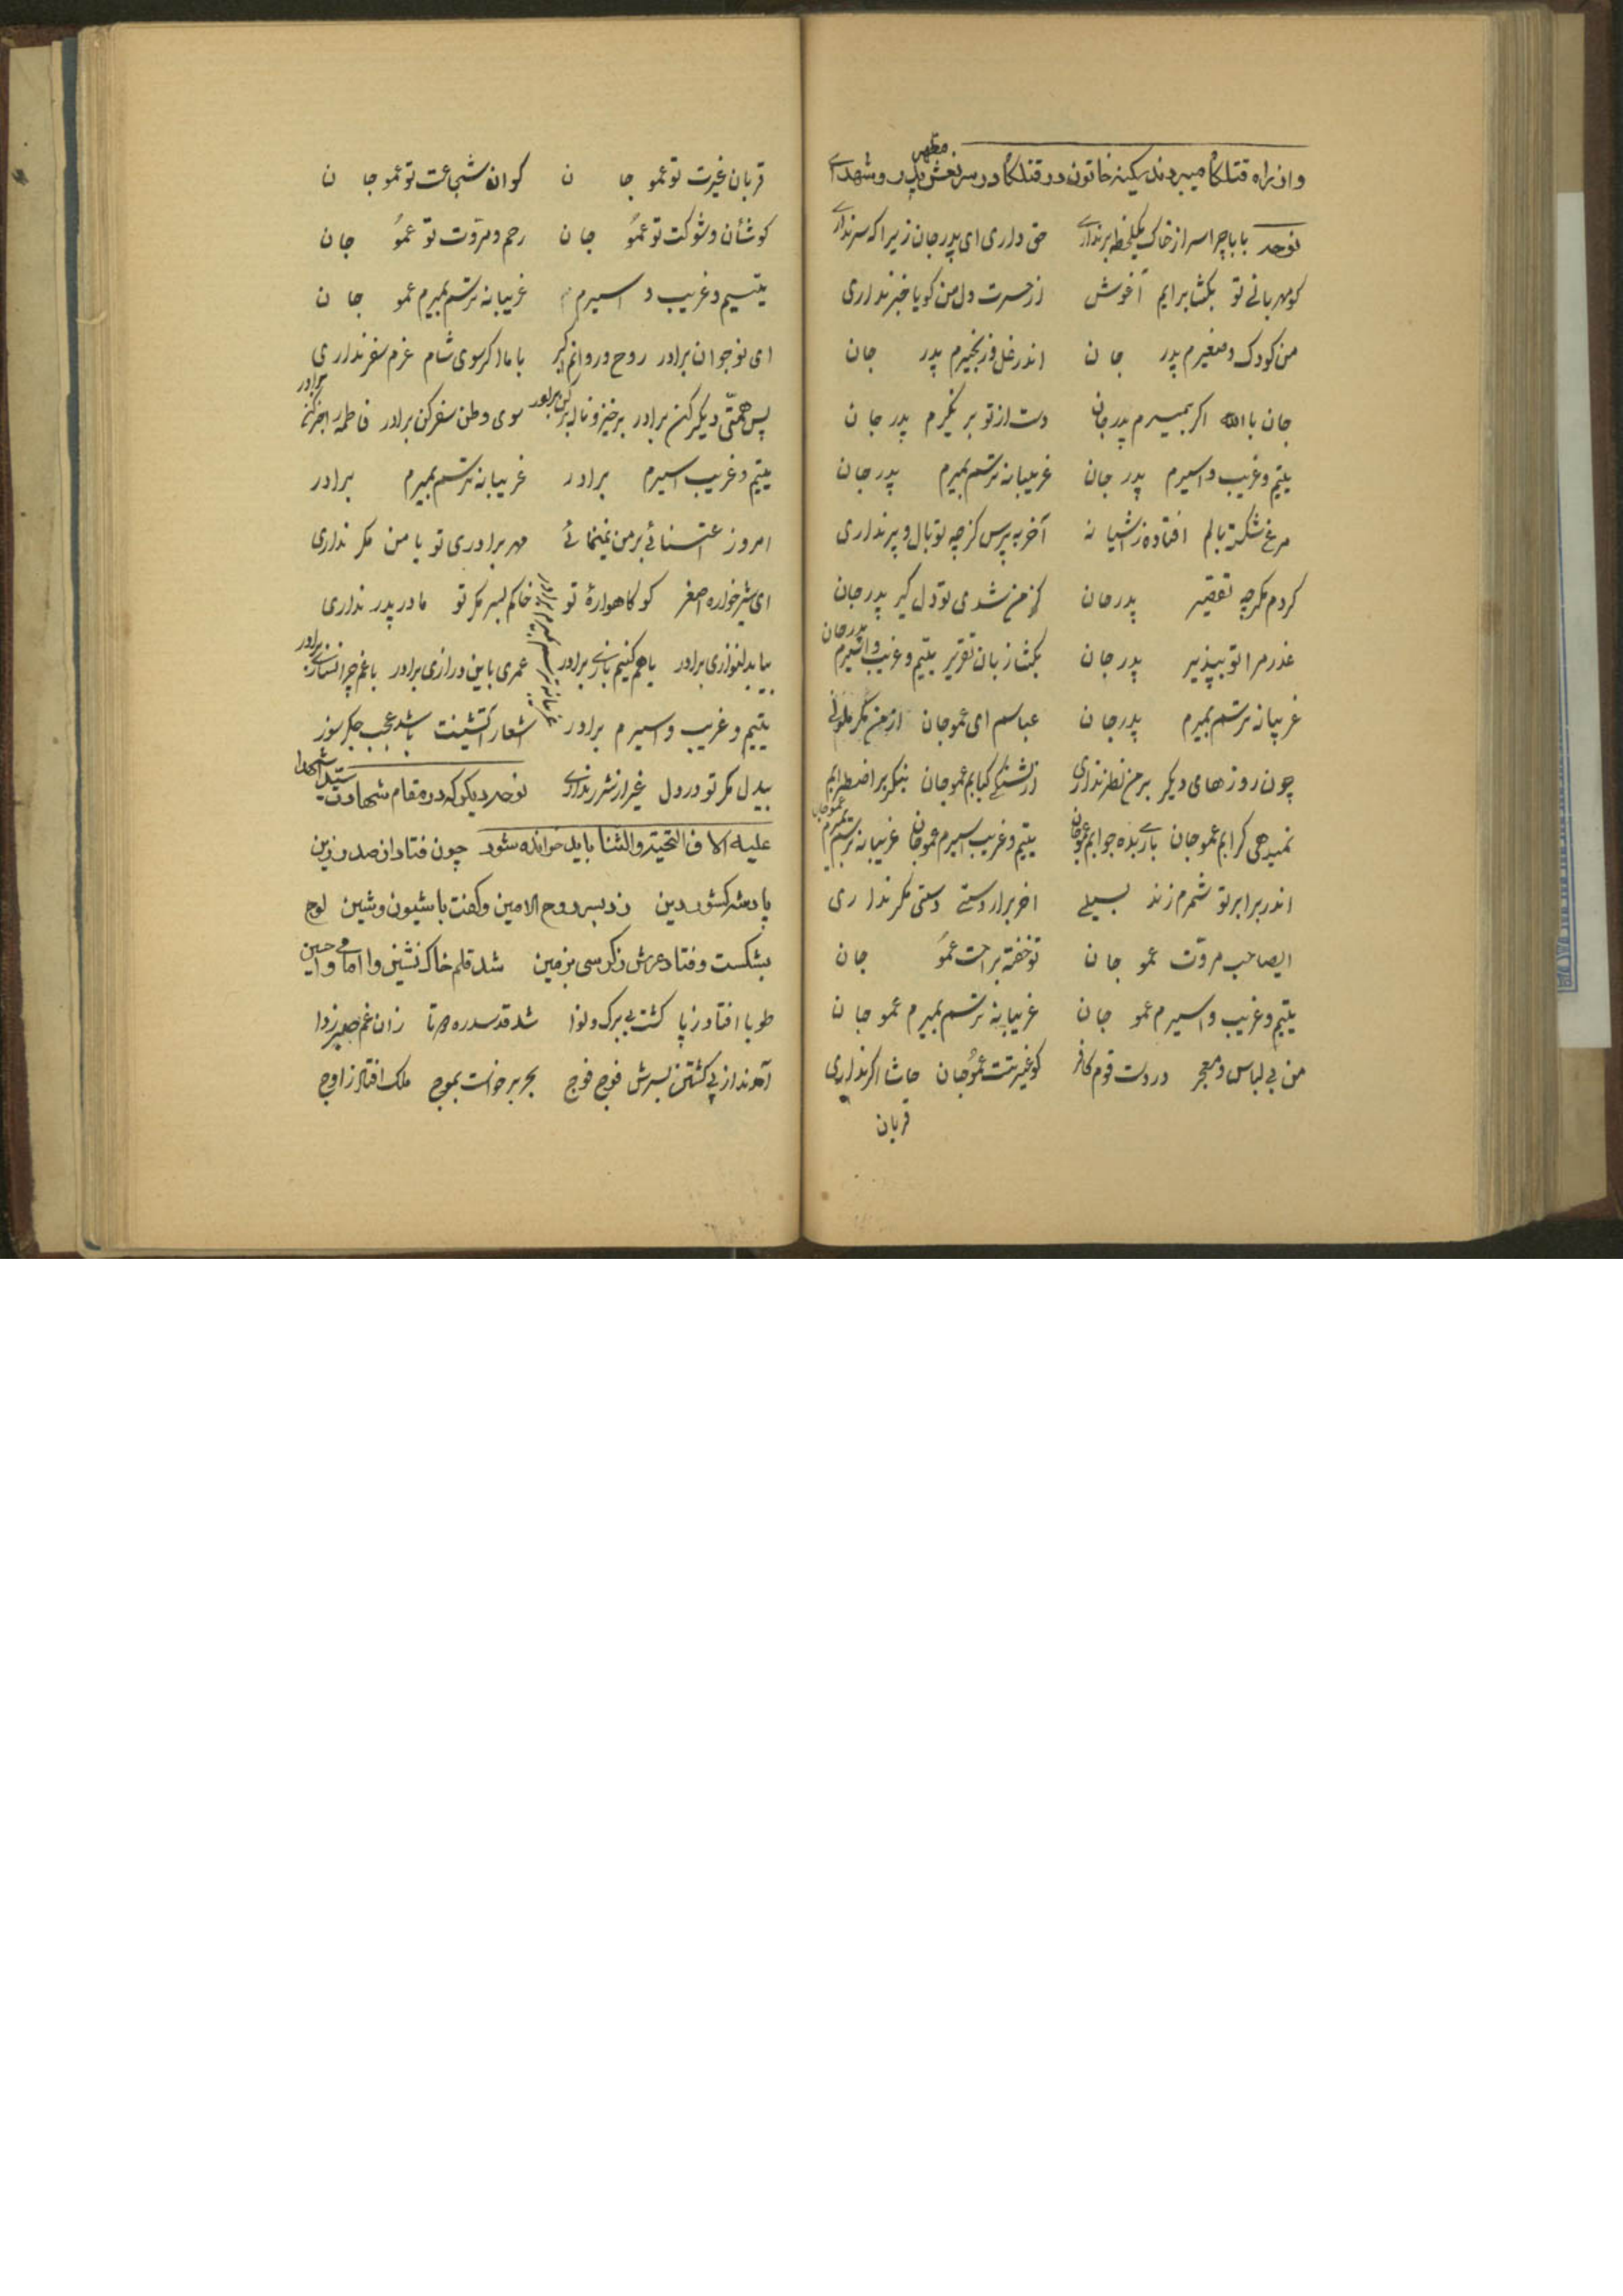 واز براه قتلگاه میبردند سکینه خاتون در قتلگاه در سر نعش پدر و شهدای
مظهر
نوحه بابا چرا سر از خاک یکلحظه برنداری حق داری ای پدر جان زیرا که سر نداری
کو مهربانی تو بگشا برایم آغوش از حسرت دل من گویا خبر نداری
من کودک و صغیرم پدر جان اندر غل و زنجیرم پدر جان
جان باالله اگر بمیرم پدر جان دست از تو بر نگیرم پدر جان
یتیم و غریب و اسیرم پدر جان غریبانه ترسم بمیرم پدر جان
مرغ شکسته بالم افتاده ز آشیانه آخر به پرس کز چه تو بال و پر نداری
کردم مگر چه تقصیر پدر جان کز من شدی تو دل گیر پدر جان
عذر مرا تو بپذیر پدر جان بگشا زبان تقریر یتیم و غریب و اسیرم پدر جان
غریبانه ترسم بمیرم پدر جان عباسم ای عمو جان از من مگر ملولی
چون روزهای دیگر بر من نظر نداری از تشنگی کبابم عمو جان بنگر بر اضطرابم
نمیدهی گر آبم عمو جان باری بده جوابم عمو جان یتیم و غریب اسیرم عمو جان غریبانه ترسم بمیرم عمو جان
اندر برابر تو شمرم زند سیلی آخر برار دستی دستی مگر نداری
ایصاحب مروت عمو جان تو خفته براحت عمو جان
یتیم و غریب و اسیرم عمو جان غریبانه ترسم بمیرم عمو جان
من بی لباس و معجر در دست قوم کافر کو غیرتت عمو جان حاشا اگر نداری
قربان
قربان غیرت تو عمو جان کو آن شجاعت تو عمو جان
کو شأن و شوکت تو عمو جان رحم و مروت تو عمو جان
یتیم و غریب و اسیرم غریبانه ترسم بمیرم عمو جان
ای نوجوان برادر روح و روانم اکبر با ما اگر سوی شام عزم سفر نداری
پس همتی دیگر کن برادر برخیز و ناله سر کن برادر سوی وطن سفر کن برادر فاطمه را خبر کن برادر
یتیم و غریب اسیرم برادر غریبانه ترسم بمیرم برادر
امروز اعتنائی بر من نمینمائی مهر برادری تو با من مگر نداری
ای شیرخواره اصغر کو گاهوارۀ تو خاکم بسر مگر تو مادر پدر نداری
بیا بدلنوازی برادر باهم کنیم بازی برادر عمری باین درازی برادر با غم چرا نسازی برادر
یتیم و غریب و اسیرم برادر غریبانه ترسم بمیرم برادر اشعار آتشینت باشد عجب جگر سوز
بیدل مگر تو در دل غیر از شرر نداری نوحه دیگر که در مقام شهادت سید الشهدا
علیه الاف التحیة والثنا باید خوانده شود چون فتاد از صدر زین
پادشه کشور دین زد بسر روح الامین و گفت با شیون و شین لوح
بشکست و فتاد عرش ز کرسی بزمین شد قلم خاک نشین وا امامی وا حسین
طوبا افتاد ز پا گشت بی برگ و نوا شد قد سدره دوتا زان غم
آمدند از پی کشتن بسرش فوج فوج بحر برخواست بموج ملک افتاد ز اوج